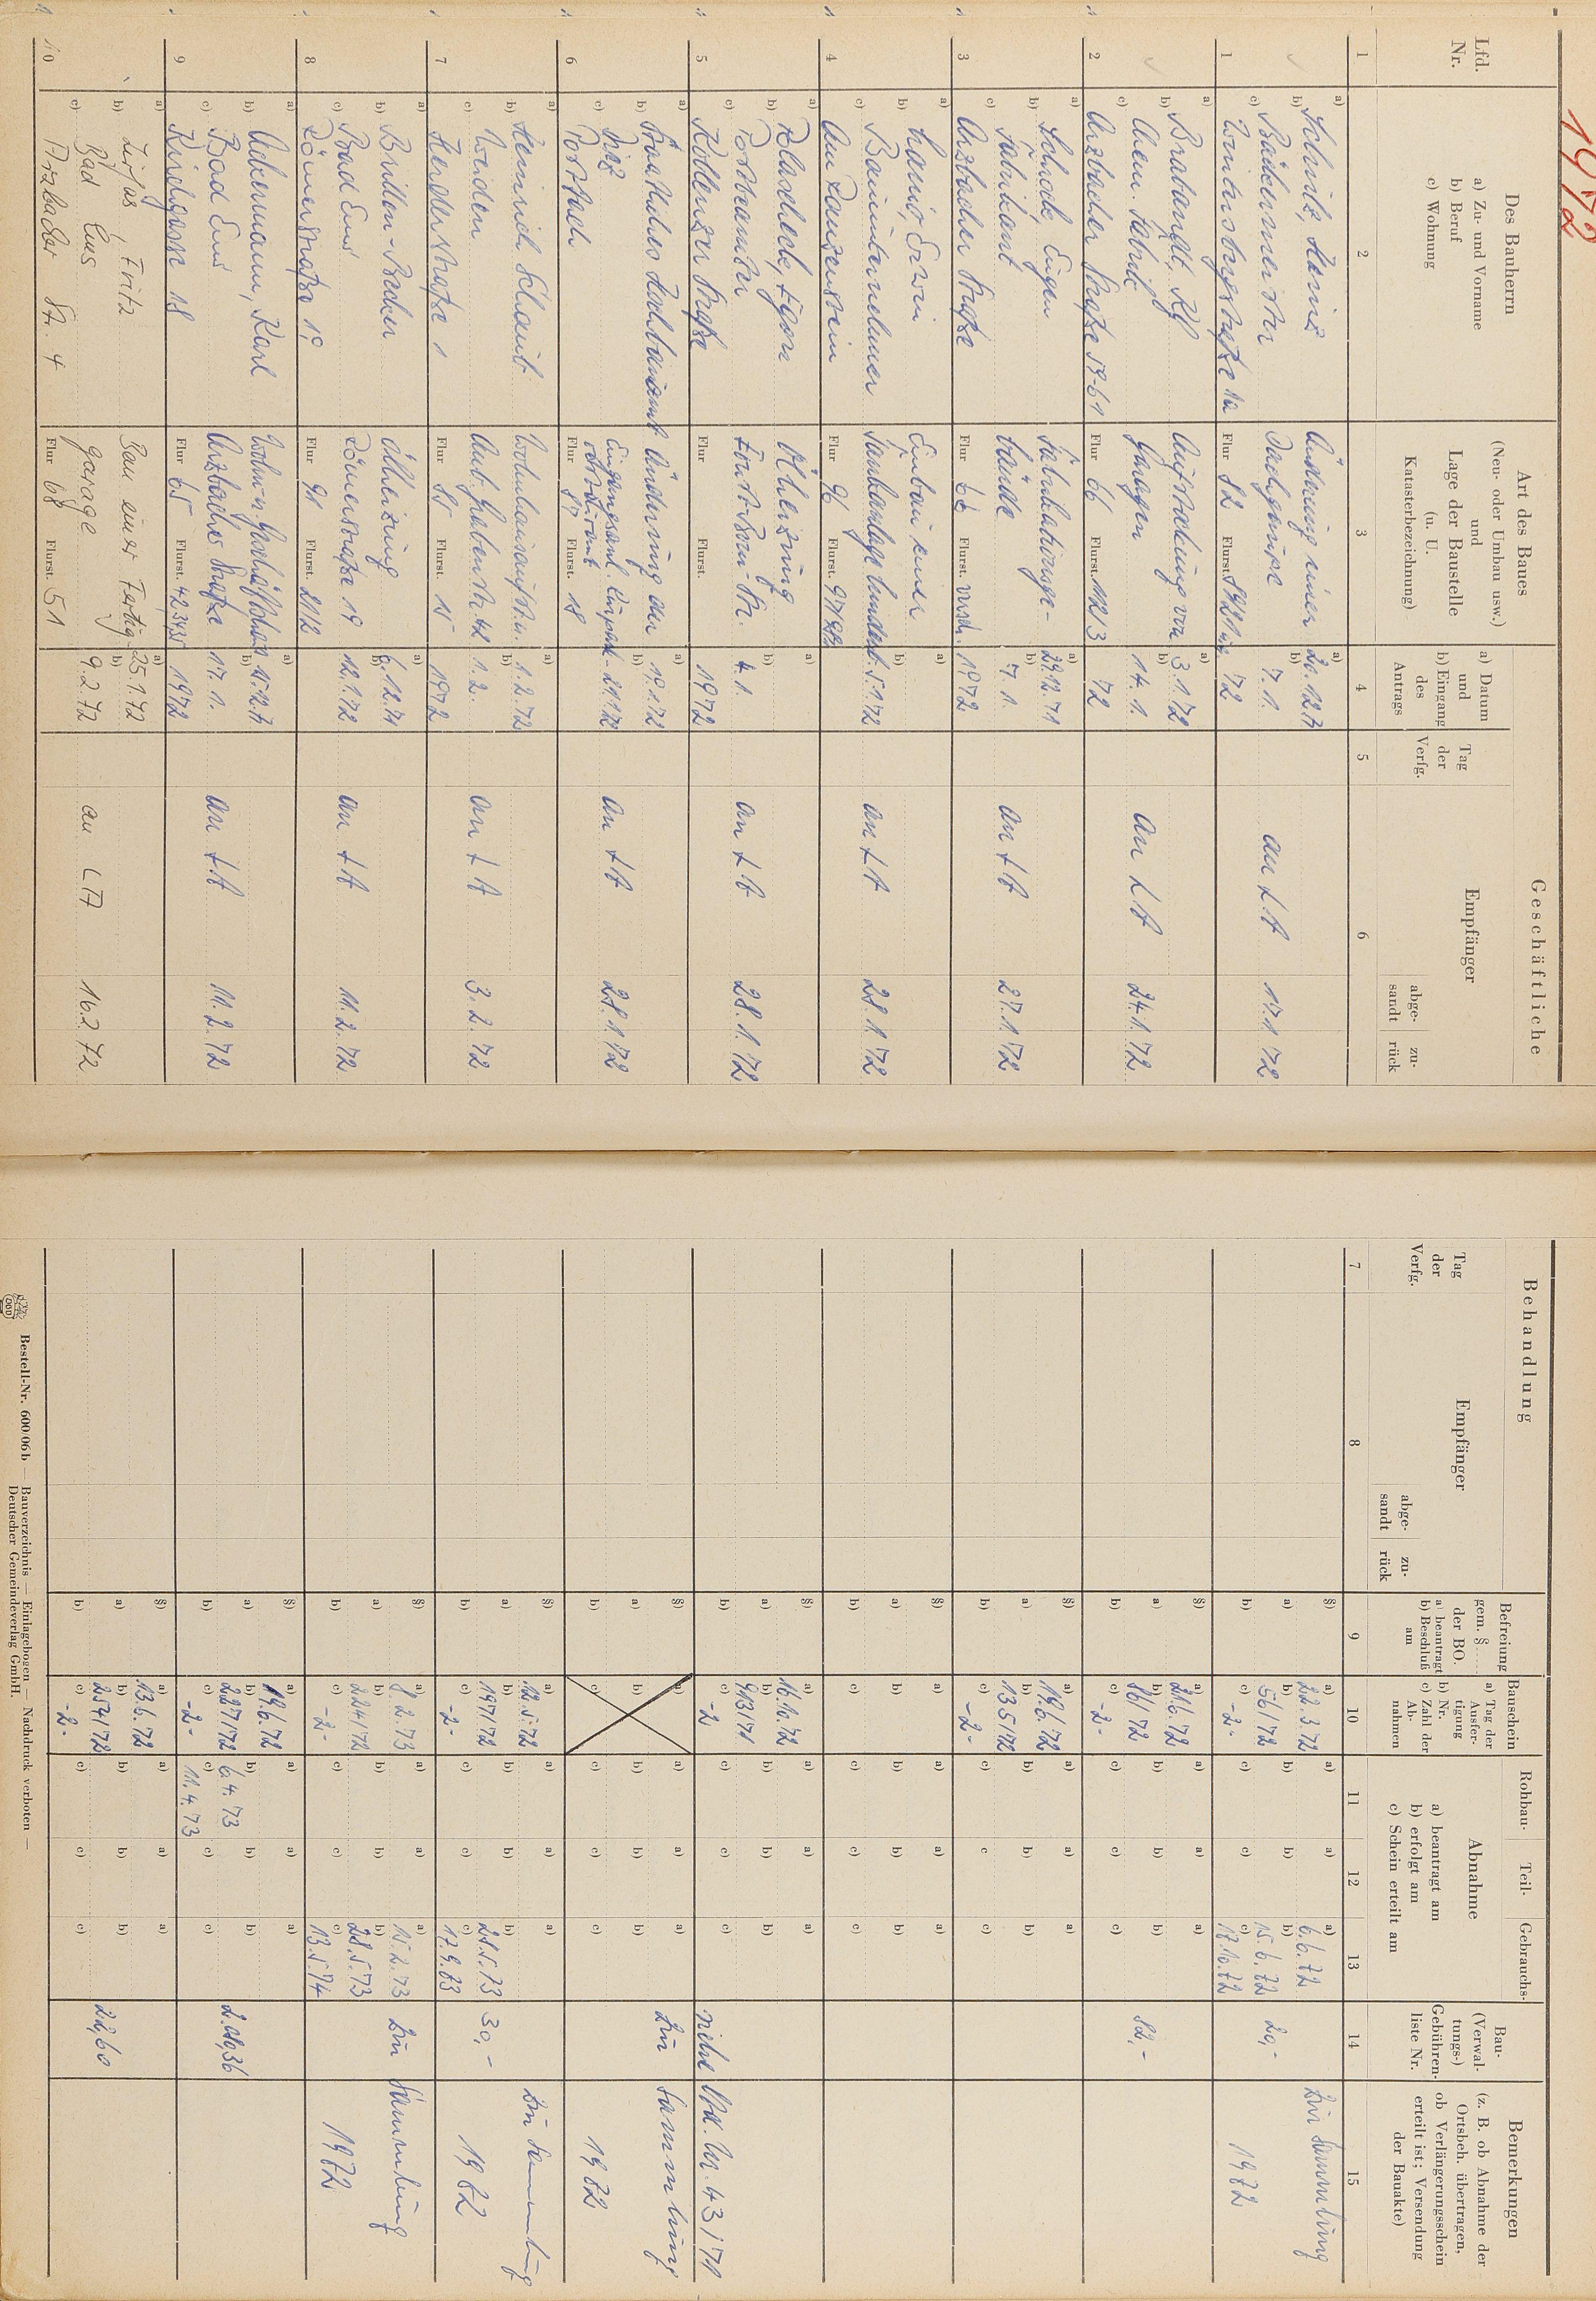 1972
Lfd.
Nr.
Des Bauherrn
a) Zu- und Vorname
b) Beruf
c) Wohnung
Art des Baues
(Neu- oder Umbau usw.)
und
Lage der Baustelle
(u. U.
Katasterbezeichnung)
Geschäftliche
a) Datum
und
b) Eingang
des
Antrags
Tag
der
Verfg.
Empfänger
abge-
sandt
zu-
rück
1 2 3 4 5 6
1
a) Schmitz, Heinz
b) Bäckermeister
c) Wintersbergstraße 12
Änderung einer
Dachgaupe
Flur 82 Flurst.
7. 1.
72
an LA 17.1.72
2
a) Brabandt, KG
b) Chem. Fabrik
c) Arzbacher Straße 59-61
Aufstockung von
Garagen
Flur 66 Flurst. 112/3
a) 3.1.72
b) 14.1
72
an LA 24.1.72
3
a) Schock, Eugen
b) Fabrikant
c) Arzbacher Straße
Fabrikationsge-
bäude
Flur 66 Flurst. versch.
a) 29.12.71
b) 7.1.
1972
an LA 27.1.72
4
a)
b) Bauunternehmer
c)
Einbau einer
Flur 96 Flurst.
a)
b) 5.1.72
an LA 28.1.72
5
a)
b) Postbeamter
c) Koblenzer Straße
Ölheizung
Ernst-Born-Str.
Flur Flurst.
a)
b) 4.1.
1972
an LA 28.1.72
6
a) Staatliches Hochbauamt
b) Diez
c) Postfach
Änderung der
Flur 87 Flurst. 18
19.1.72
21.1.72
an LA 28.1.72
7
a) Heinrich Schaub
b) Weiden
c) Herderstraße 1
Flur 85 Flurst. 15
a)
b) 1.2.72
1.2.
1972
an LA 3.2.72
8
a)
b) Brillen-Becker
c) Bad Ems
Römerstraße 19
Ölheizung
Römerstraße 19
Flur 91 Flurst. 21/2
a) 6.12.71
b) 12.1.72
an LA 11.2.72
9
a)
b) Ackermann, Karl
c) Bad Ems
Kirchgasse 18
Wohn- u. Geschäftshaus
Arzbacher Straße
Flur 65 Flurst.
a)
b) 17.1.
1972
an LA 11.2.72
10
a) Zirfas, Fritz
b) Bad Ems
c) Arzbacher St. 4
Bau einer Fertig-
garage
Flur 68 Flurst. 51
a) 25.1.72
b) 9.2.72
an LA 16.2.72
Behandlung
Tag
der
Verfg.
Empfänger
abge-
sandt
zu-
rück
Befreiung
gem. §......
der BO.
a) beantragt
b) Beschluß
am
Bauschein
a) Tag der
Ausfer-
tigung
b) Nr.
c) Zahl der
Ab-
nahmen
Rohbau-
Teil-
Gebrauchs-
Abnahme
a) beantragt am
b) erfolgt am
c) Schein erteilt am
Bau-
(Verwal-
tungs-)
Gebühren-
liste Nr.
Bemerkungen
(z. B. ob Abnahme der
Ortsbeh. übertragen,
ob Verlängerungsschein
erteilt ist; Versendung
der Bauakte)
7 8 9 10 11 12 13 14 15
§) a) b)
a) 22.3.72
b) 56/72
c) -2-
a) b) c)
a) b) c)
a) 6.6.72
b) 15.6.72
c) 17.10.72
20,-
Zur Sammlung
1972
§) a) b)
a) 21.6.72
b) 86/72
c) -2-
a) b) c)
a) b) c)
a) b) c)
82,-
§) a) b)
a) 19.6.72
b) 135/72
c) -2-
a) b) c)
a) b) c
a) b) c)
§) a) b)
a) b) c)
a) b) c)
a) b) c)
a) b) c)
§) a) b)
a) 16.10.72
b) 913/71
c) -2
a) b) c)
a) b) c)
a) b) c)
siehe lfd. Nr. 43/71
§) a) b)
a) b) c)
a) b) c)
a) b) c)
a) b) c)
Zur Sammlung
1972
§) a) b)
a) 12.5.72
b) 197/72
c) -2-
a) b) c)
a) b) c)
a)
b) 28.5.73
c) 17.9.73
30,-
Zur Sammlung
1972
§) a) b)
a) 8.2.73
b) 224/72
c) -2-
a) b) c)
a) b) c)
a) 15.2.73
b) 28.5.73
c) 13.5.74
Zur Sammlung
1972
§) a) b)
a) 19.6.72
b) 227/72
c) -2-
a)
b) 6.4.73
c) 11.4.73
a) b) c)
a) b) c)
§) a) b)
a) 13.6.72
b) 254/72
c) -2-
a) b) c)
a) b) c)
a) b) c)
22,60
Bestell-Nr. 600/06 b — Bauverzeichnis — Einlagebogen — Nachdruck verboten —
Deutscher Gemeindeverlag GmbH.